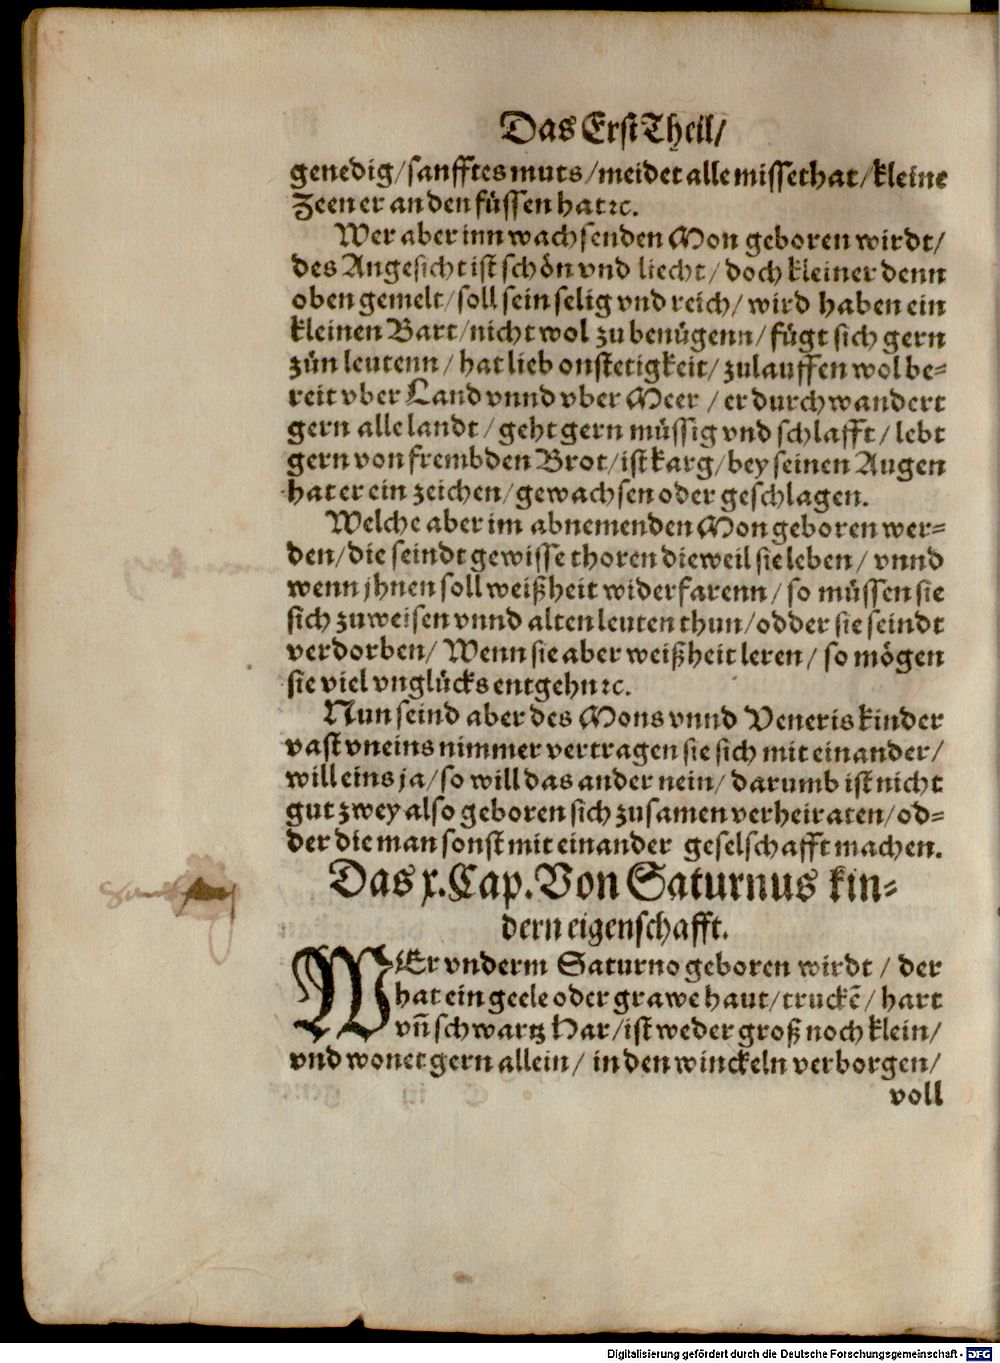 Das Erst Theil/
genedig/sanfftes muts/meidet alle missethat/kleine
Zeen er an den füssen hat ꝛc.
Wer aber inn wachsenden Mon geboren wirdt/
des Angesicht ist schön vnd liecht/doch kleiner denn
oben gemelt/soll sein selig vnd reich/wird haben ein
kleinen Bart/nicht wol zu benügenn/fügt sich gern
zůn leutenn/hat lieb onstetigkeit/zulauffen wol be⸗
reit vber Land vnnd vber Meer/er durchwandert
gern alle landt/geht gern müssig vnd schlafft/lebt
gern von frembden Brot/ist karg/bey seinen Augen
hat er ein zeichen/gewachsen oder geschlagen.
Welche aber im abnemenden Mon geboren wer⸗
den/die seindt gewisse thoren dieweil sie leben/vnnd
wenn jhnen soll weißheit widerfarenn/so müssen sie
sich zu weisen vnnd alten leuten thun/odder sie seindt
verdorben/Wenn sie aber weißheit leren/so mögen
sie viel vnglücks entgehn ꝛc.
Nun seind aber des Mons vnnd Veneris kinder
vast vneins nimmer vertragen sie sich mit einander/
will eins ja/so will das ander nein/darumb ist nicht
gut zwey also geboren sich zusamen verheiraten/od⸗
der die man sonst mit einander geselschafft machen.
Das x. Cap. Von Saturnus kin⸗
dern eigenschafft.
WEr vnderm Saturno geboren wirdt/der
hat ein geele oder grawe haut/truckē/hart
vñ schwartz Har/ist weder groß noch klein/
vnd wonet gern allein/in den winckeln verborgen/
voll
Digitalisierung gefördert durch die Deutsche Forschungsgemeinschaft - DFG